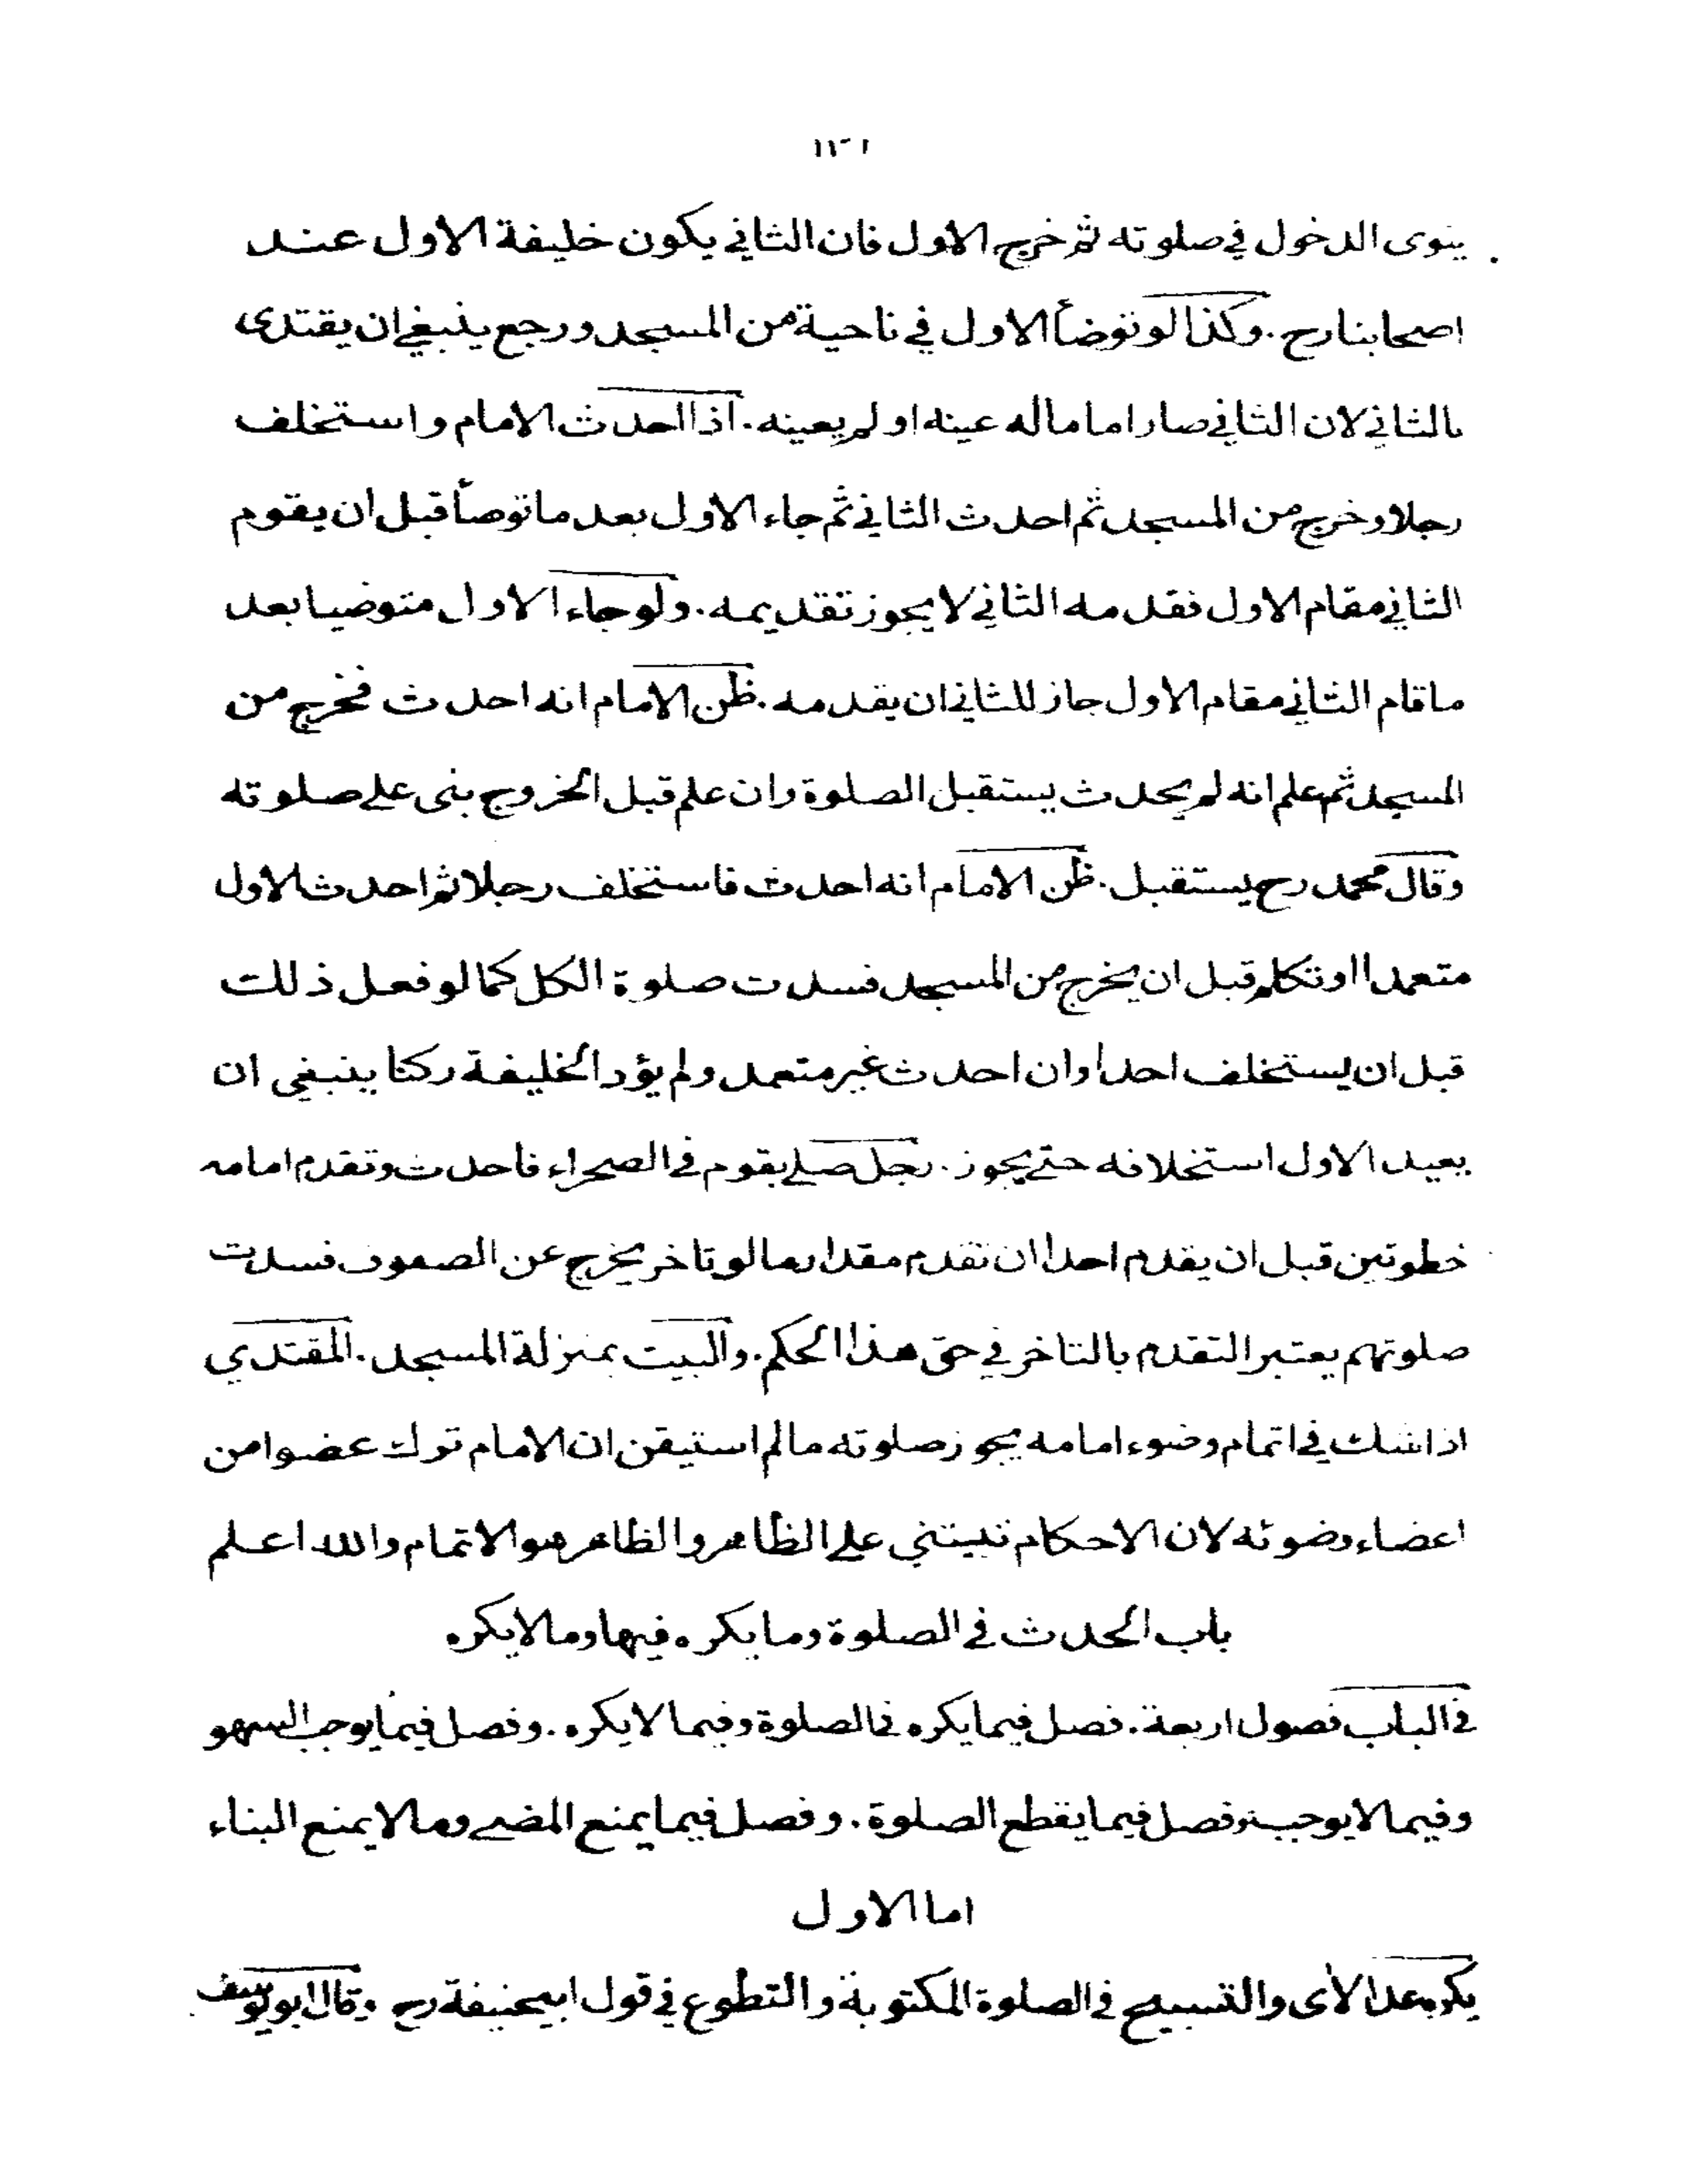 ينوى الدخول في صلوته ثم خرج الاول فان الثاني يكون خليفة الاول عند
اصحابنا رح . وكذا لو توضأ الاول في ناحية من المسجد ورجع ينبغي ان يقتدى
بالثاني لان الثاني صار اماما له عينه او لم يعينه . اذا احدث الامام واستخلف
رجلا وخرج من المسجد ثم احدث الثاني ثم جاء الاول بعد ما توضأ قبل ان يقوم
الثاني مقام الاول فقدمه الثاني لا يجوز تقديمه . ولو جاء الاول متوضيا بعد
ما قام الثاني مقام الاول جاز للثاني ان يقدمه . ظن الامام انه احدث فخرج من
المسجد ثم علم انه لم يحدث يستقبل الصلوة وان علم قبل الخروج بنى على صلوته
وقال محمد رح يستقبل . ظن الامام انه احدث فاستخلف رجلا ثم احدث الاول
متعمدا او تكلم قبل ان يخرج من المسجد فسدت صلوة الكل كما لو فعل ذلك
قبل ان يستخلف احدا وان احدث غير متعمد ولم يؤد الخليفة ركنا ينبغي ان
يعيد الاول استخلافه حتى يجوز . رجل صلى بقوم في الصحراء فاحدث وتقدم امامه
خطوتين قبل ان يقدم احدا ان تقدم مقدار ما لو تاخر يخرج عن الصفوف فسدت
صلوتهم يعتبر التقدم بالتاخر في حق هذا الحكم . والبيت بمنزلة المسجد . المقتدي
اذا شك في اتمام وضوء امامه يجوز صلوته ما لم استيقن ان الامام ترك عضوا من
اعضاء وضوئه لان الاحكام تبتني على الظاهر والظاهر هو الاتمام والله اعلم
باب الحدث في الصلوة وما يكره فيها وما لا يكره
في الباب فصول اربعة . فصل فيما يكره في الصلوة وفيما لا يكره . وفصل فيما يوجب السهو
وفيما لا يوجب وفصل فيما يقطع الصلوة . وفصل فيما يمنع المضي وما لا يمنع البناء
اما الاول
يكره عد الآى والتسبيح في الصلوة المكتوبة والتطوع في قول ابيحنيفة رح . وقال ابو يوسف